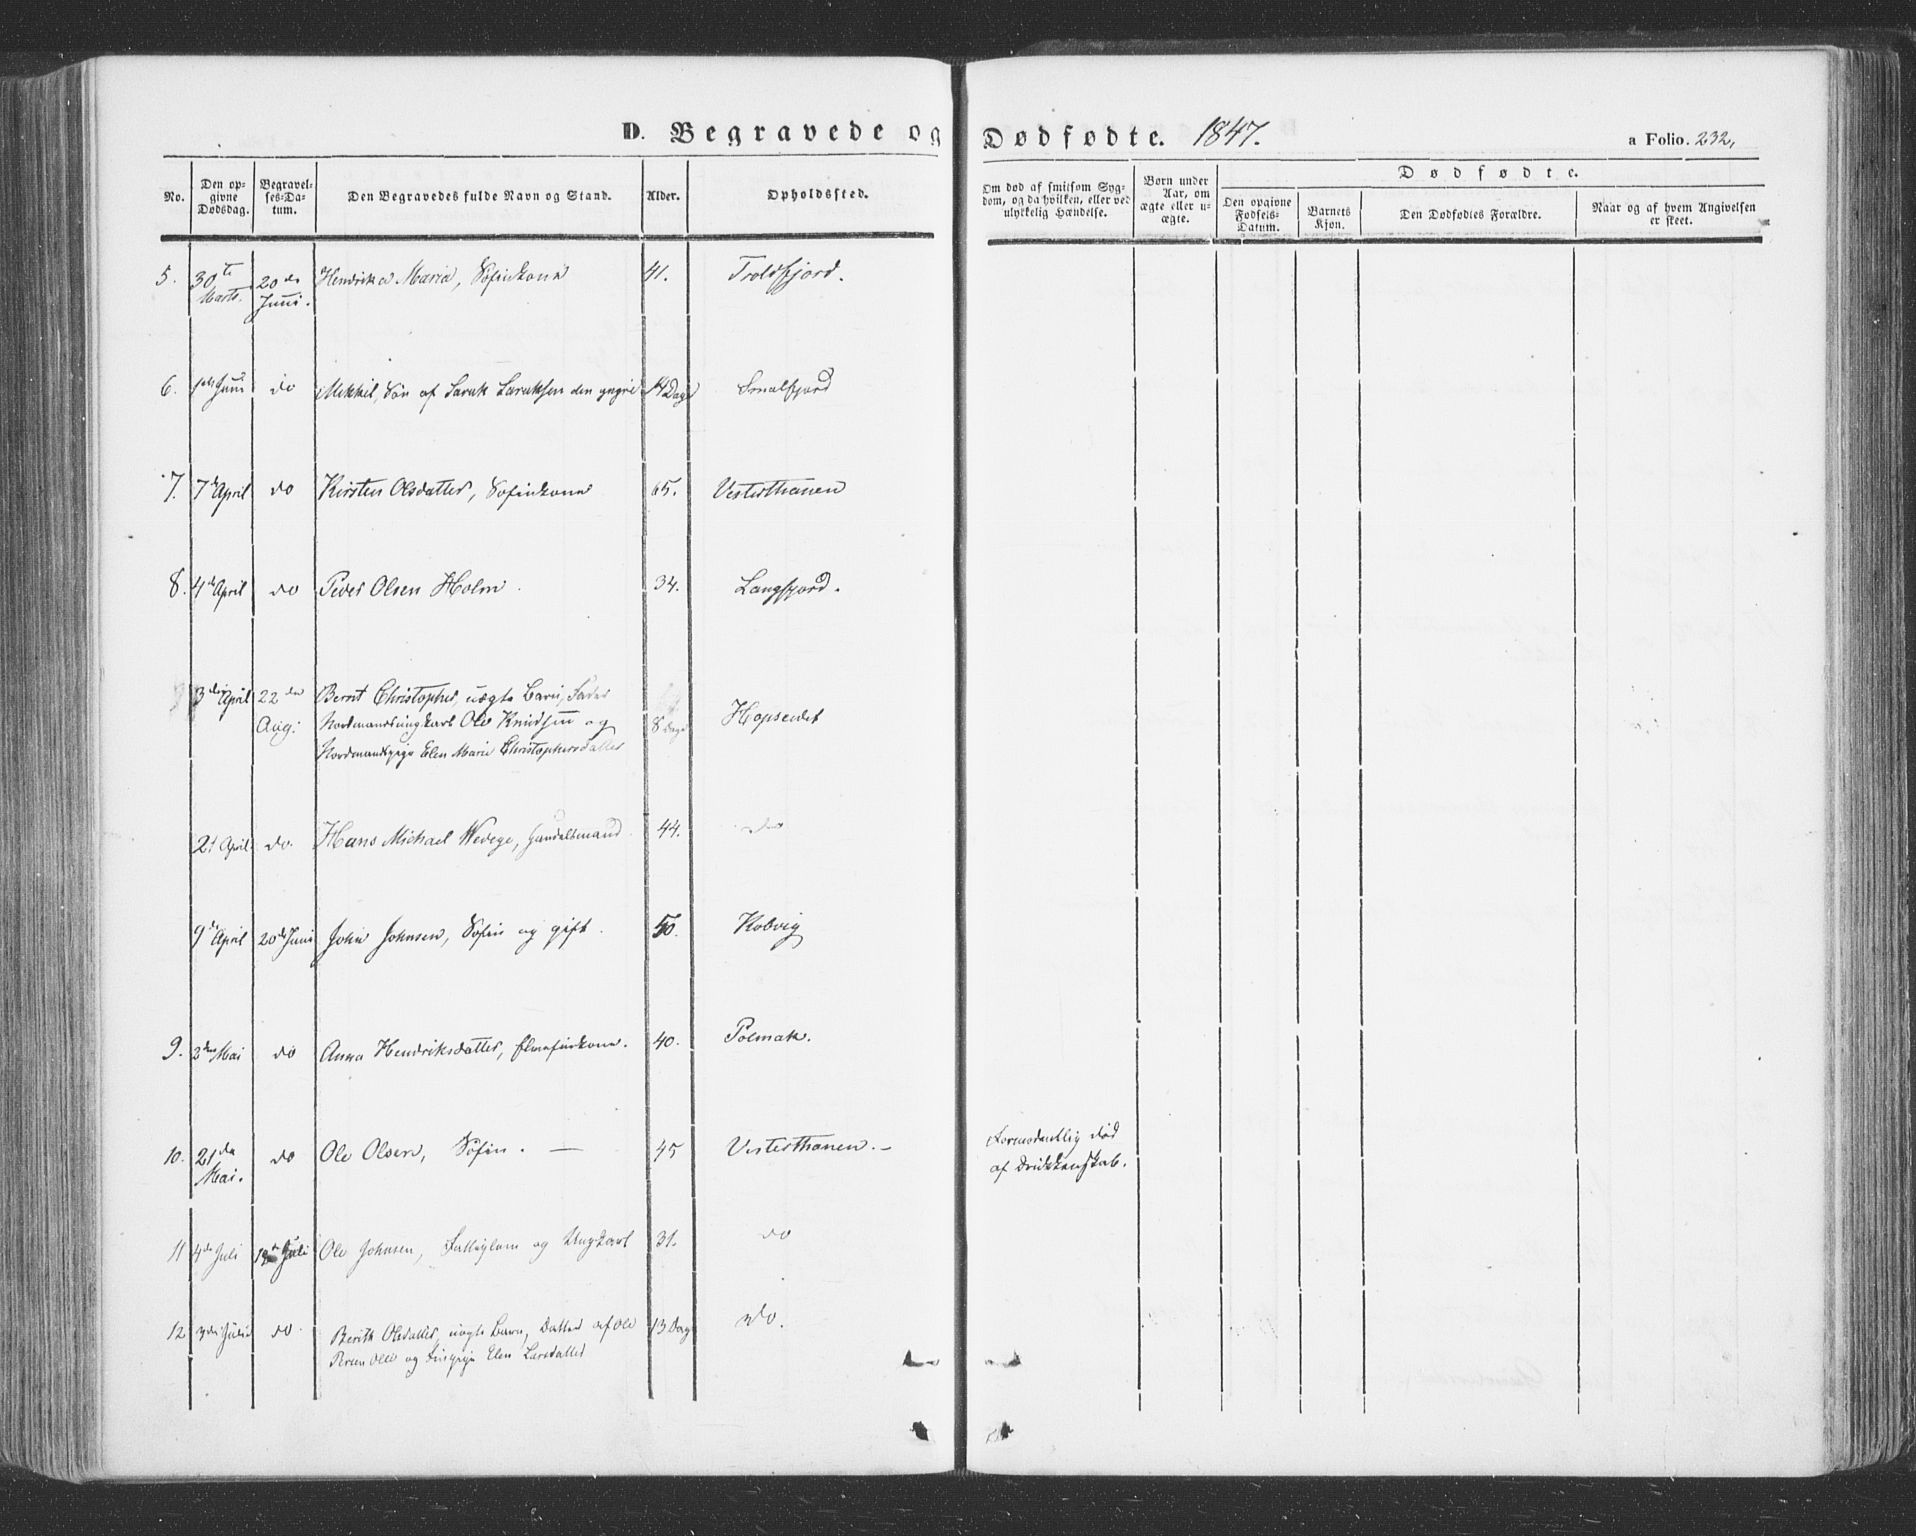 D. Begravede og Dødfødte. 1847. a Folio. 232,
No.
Den op-
givne
Dødsdag.
Begravel-
ses-Da-
tum.
Den Begravedes fulde Navn og Stand.
Alder.
Opholdssted.
Om død af smitsom Syg-
dom, og da hvilken, eller ved
ulykkelig Hændelse.
Børn under
Aar, om
ægte eller u-
ægte.
Dødfødte.
Den opgivne
Fødsels-
Datum.
Barnets
Kjøn.
Den Dødfødtes Forældre.
Naar og af hvem Angivelsen
er skeet.
5. 30te 20de Hendrika Maria, Søfinkone 41. Troldfjord.
Marts. Juni.
6. Juni do Mikkel, Søn af Sarak Saraksen den yngre 14 Dage Smalfjord
7. 7de April do Kirsten Olsdatter, Søfinkone 65. Vesterthanen
8. 4de April do Peder Olsen Holm. 34. Langfjord.
3die April 22de Bernt Christopher, uægte Barn, Fader
Aug: Nordmandsungkarl Ole Knudsen og 8 Dage Hopseidet
Nordmandspige Elen Marie Christophersdatter
21 April do. Hans Michael Wedege, Handelsmand. 44. do
9de April 20de Juni John Johnsen, Søfin og gift. 50. Kobvig
9. 2den Mai do Anna Hendriksdatter, Elvefinkone. 40. Polmak.
10. 21de do Ole Olsen, Søfin. — 45 Vesterthanen. – Formodentlig død
Mai. af Drukkenskab.
11 4de Juli Juli Ole Johnsen, Fattiglem og Ungkarl 31. do
12 Juli do Berith Olsdatter, uægte Barn, Datter af Ole 13 Dage do.
Olsen og Finpige Elen Larsdatter